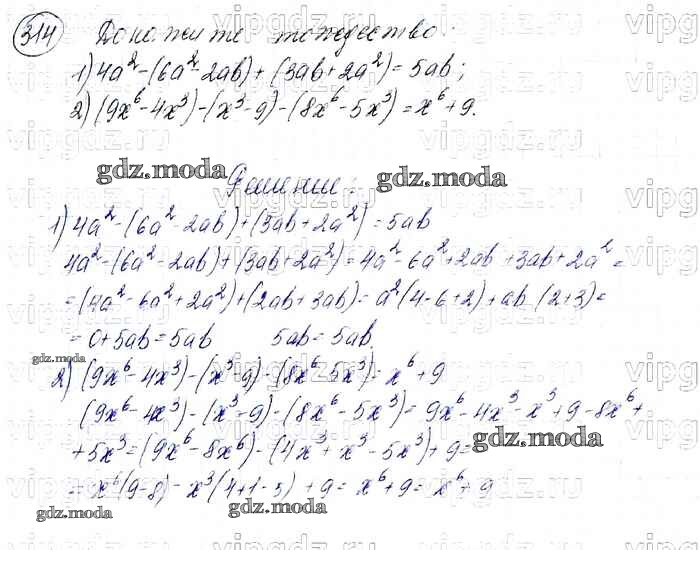 314 Докажите тождество:
1) 4a² - (6a² - 2ab) + (3ab + 2a²) = 5ab;
2) (9x⁶ - 4x³) - (x³ - 9) - (8x⁶ - 5x³) = x⁶ + 9.
gdz.moda
Решение:
gdz.moda
1) 4a² - (6a² - 2ab) + (3ab + 2a²) = 5ab
4a² - (6a² - 2ab) + (3ab + 2a²) = 4a² - 6a² + 2ab + 3ab + 2a² =
= (4a² - 6a² + 2a²) + (2ab + 3ab) = a²(4 - 6 + 2) + ab · (2 + 3) =
= 0 + 5ab = 5ab 5ab = 5ab.
gdz.moda
2) (9x⁶ - 4x³) - (x³ - 9) - (8x⁶ - 5x³) = x⁶ + 9
(9x⁶ - 4x³) - (x³ - 9) - (8x⁶ - 5x³) = 9x⁶ - 4x³ - x³ + 9 - 8x⁶ +
+ 5x³ = (9x⁶ - 8x⁶) - (4x³ + x³ - 5x³) + 9 =
gdz.moda
= x⁶(9 - 8) - x³(4 + 1 - 5) + 9 = x⁶ + 9 = x⁶ + 9
gdz.moda
gdz.moda
vipgdz.ru